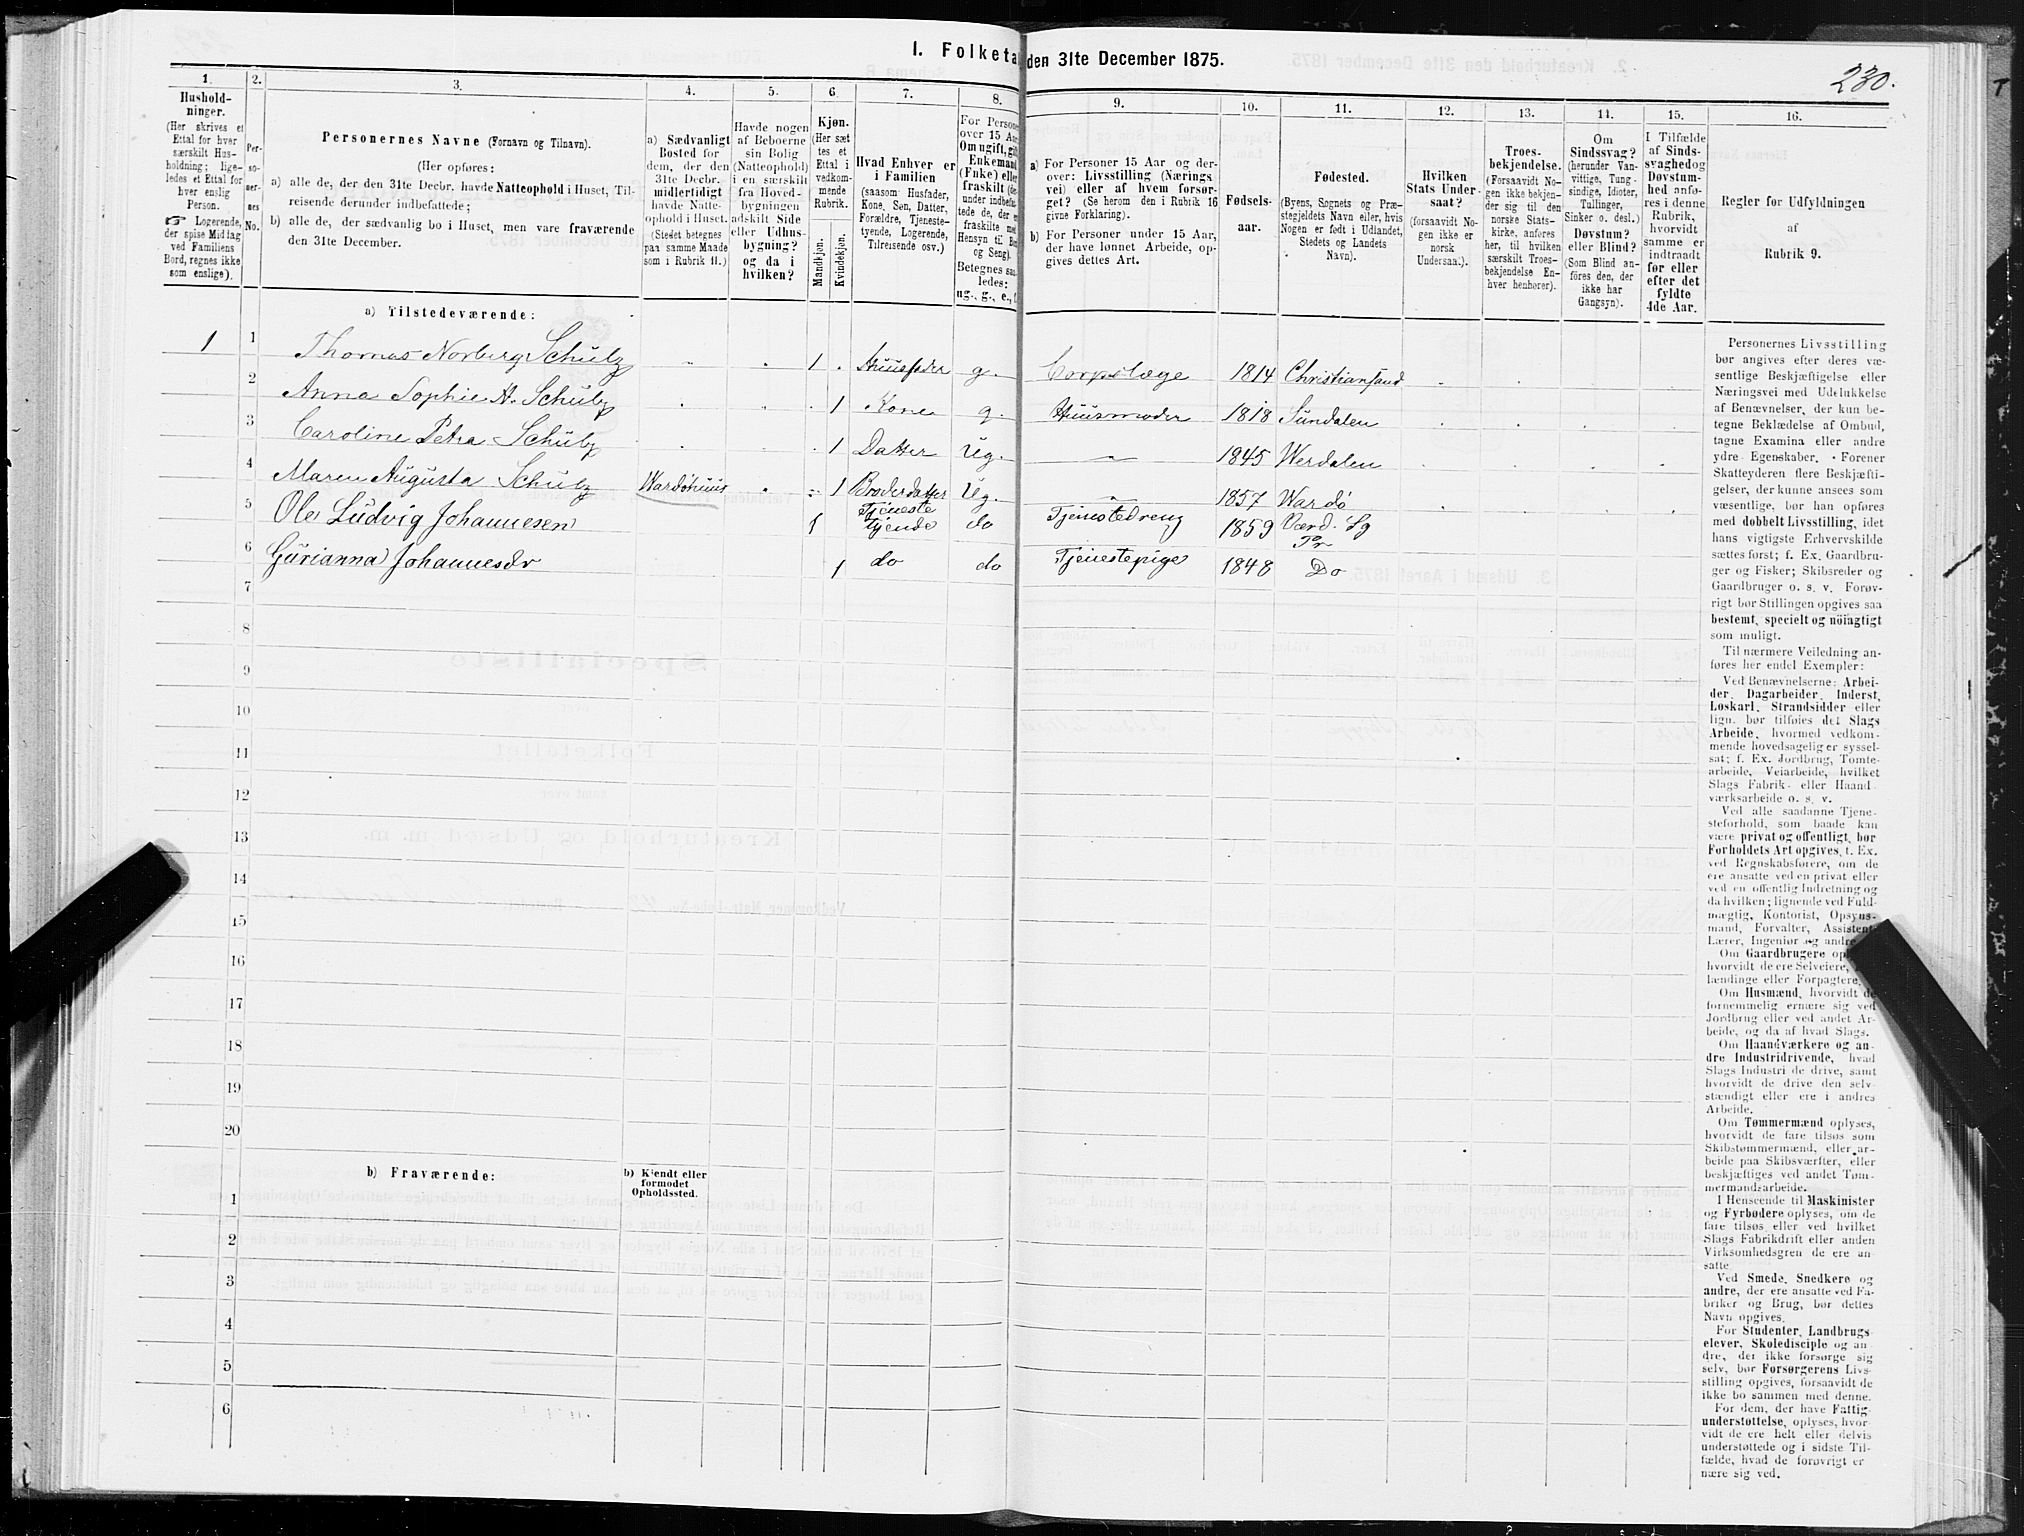 230.
I. Folketa den 31te December 1875.
1.
Hushold-
ninger.
(Her skrives et
Ettal for hver
særskilt Hus-
holdning; lige-
ledes et Ettal for
hver enslig
Person.
☞ Logerende,
der spise Middag
ved Familiens
Bord, regnes ikke
som enslige).
2.
Per-
so-
ner-
nes
No.
3.
Personernes Navne (Fornavn og Tilnavn).
(Her opføres:
a) alle de, der den 31te Decbr. havde Natteophold i Huset, Til-
reisende derunder indbefattede;
b) alle de, der sædvanlig bo i Huset, men vare fraværende
den 31te December.
4.
a) Sædvanligt
Bosted for
dem, der den
31te Decbr.
midlertidigt
havde Natte-
ophold i Huset.
(Stedet betegnes
paa samme Maade
som i Rubrik 11.)
5.
Havde nogen
af Beboerne
sin Bolig
(Natteophold)
i en særskilt
fra Hoved-
bygningen
adskilt Side
eller Udhus-
bygning?
og da i
hvilken?
6.
Kjøn.
(Her sæt
tes et
Ettal i
vedkom-
mende
Rubrik.
Mandkjøn.
Kvindekjøn.
7.
Hvad Enhver er
i Familien
(saasom: Husfader,
Kone, Søn, Datter,
Forældre, Tjeneste-
tyende, Logerende,
Tilreisende osv.)
8.
For Persone
over 15 Aar
Om ugift, gift
Enkemand
(Enke) eller
fraskilt (de
under indbefat
tede de, der e
fraskilte med
Hensyn til Bo
og Seng).
Betegnes saa
ledes:
ug., g., e., f
9.
a) For Personer 15 Aar og der-
over: Livsstilling (Nærings
vei) eller af hvem forsør-
get? (Se herom den i Rubrik 16
givne Forklaring).
b) For Personer under 15 Aar,
der have lønnet Arbeide, op-
gives dettes Art.
10.
Fødsels-
aar.
11.
Fødested.
(Byens, Sognets og Præ-
stegjeldets Navn eller, hvis
Nogen er født i Udlandet,
Stedets og Landets
Navn).
12.
Hvilken
Stats Under-
saat?
(forsaavidt No-
gen ikke er
norsk
Undersaat.)
13.
Troes-
bekjendelse.
(Forsaavidt No-
gen ikke bekjen-
der sig til den
norske Stats-
kirke, anføres
her, til hvilken
særskilt Troes-
bekjendelse En-
hver henhører).
14.
Om
Sindssvag?
(herunder Van-
vittige, Tung-
sindige, Idioter,
Tullinger,
Sinker o. desl.)
Døvstum?
eller Blind?
(Som Blind an-
føres den, der
ikke har
Gangsyn).
15.
I Tilfælde
af Sinds-
svaghedog
Døvstum-
hed anfø-
res i denne
Rubrik,
hvorvidt
samme er
indtraadt
før eller
efter det
fyldte
4de Aar.
16.
Regler for Udfyldningen
af
Rubrik 9.
a) Tilstedeværende:
1 1 Thomas Norberg Schulz 1 Huusfader g. Corpslæge 1814 Christiansand
2 Anna Sophie H. Schulz 1 Kone g. Huusmoder 1818 Sundalen
3 Caroline Petra Schulz 1 Datter Ug. 1845 Werdalen
4 Maren Augusta Schulz Wardøhuus 1 Broderdatter Ug. 1857 Wardø
5 Ole Ludvig Johannesen 1 Tjeneste
tyende do Tjenestedreng 1859 Værd. Sg
Pr
6 Gurianna Johannesdr 1 do do Tjenestepige 1848 Do
7
8
9
10
11
12
13
14
15
16
17
18
19
20
b) Fraværende:
b) Kjendt eller
formodet
Opholdssted.
1
2
3
4
5
6
Personernes Livsstilling
bør angives efter deres væ-
sentlige Beskjæftigelse eller
Næringsvei med Udelukkelse
af Benævnelser, der kun be-
tegne Beklædelse af Ombud,
tagne Examina eller andre
ydre Egenskaber. Forener
Skatteyderen flere Beskjæfti-
gelser, der kunne ansees som
væsentlige, bør han opføres
med dobbelt Livsstilling, idet
hans vigtigste Erhvervskilde
sættes først; f. Ex. Gaardbru-
ger og Fisker; Skibsreder og
Gaardbruger o. s. v. Forøv-
rigt bør Stillingen opgives saa
bestemt, specielt og nöiagtigt
som muligt.
Til nærmere Veiledning an-
føres her endel Exempler:
Ved Benævnelserne: Arbei-
der, Dagarbeider, Inderst,
Løskarl, Strandsidder eller
lign. bør tilføies det Slags
Arbeide, hvormed vedkom-
mende hovedsagelig er syssel-
sat; f. Ex. Jordbrug, Tomte-
arbeide, Veiarbeide, hvilket
Slags Fabrik- eller Haand
værksarbeide o. s. v.
Ved alle saadanne Tjene-
steforhold, som baade kan
være privat og offentligt, bør
Forholdets Art opgives, t. Ex.
ved Regnskabsførere, om de
ere ansatte ved en privat eller
ved en offentlig Indretning og
da hvilken; lignende ved Fuld-
mægtig, Kontorist, Opsyns-
mand, Forvalter, Assistent,
Lærer, Ingeniør og andre
Om Gaardbrugere op
hvorvidt de ere Selveiere,
lændinge eller Forpagtere.
Om Husmænd, hvorvidt de
fornemmelig ernære sig ved
Jordbrug eller ved andet Ar-
beide, og da af hvad Slags.
Om Haandværkere og an-
dre Industridrivende, hvad
Slags Industri de drive, samt
hvorvidt de drive den selv-
stændigt eller ere i andres
Arbeide.
Om Tømmermænd oplyses,
hvorvidt de fare tilsøs som
Skibstømmermænd, eller ar-
beide paa Skibsværfter, eller
beskjæftiges ved andet Tøm-
mermandsarbeide.
I Henseende til Maskinister
og Fyrbødere oplyses, om de
fare tilsøs eller ved hvilket
Slags Fabrikdrift eller anden
Virksomhedsgren de ere an-
satte.
Ved Smede, Snedkere og
andre, der ere ansatte ved Fa-
briker og Brug, bør dettes
Navn opgives.
For Studenter, Landbrugs-
elever, Skoledisciple og an-
dre, der ikke forsørge sig
selv, bør Forsørgerens Livs-
stilling opgives, forsaavidt de
ikke bo sammen med denne.
For dem, der have Fattig-
understøttelse, oplyses, hvor-
vidt de ere helt eller delvis
understøttede og i sidste Til-
fælde, hvad de forøvrigt er
nære sig ved.